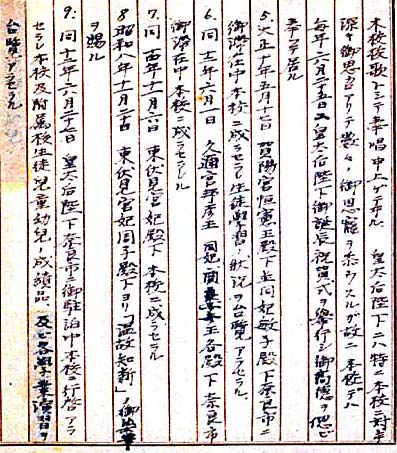 本校校歌トシテ奉唱申上ゲテヰル 皇太后陛下ニハ特ニ本校ニ対シ
深キ御思召アリテ数々ノ御恩寵ヲ忝ウスルガ故ニ本校デハ
毎年六月二十五日ニ皇太后陛下御誕辰祝賀式ヲ挙行シ御高徳ヲ偲ビ
奉ツテ居ル
5. 大正十年五月十七日 賀陽宮恒憲王殿下並同妃敏子殿下奈良市ニ
御滞在中本校ニ成ラセラレ生徒學習ノ状況ヲ台覧アラセラル
6. 同十三年六月一日 久邇宮邦彦王 同妃 王各殿下奈良市
御滞在中本校ニ成ラセラレル
7. 同十四年十一月六日 東伏見宮妃殿下本校ニ成ラセラル
8. 昭和八年十一月二十日 東伏見宮妃周子殿下ヨリ「温故知新」ノ御染筆
ヲ賜ル
9. 同十二年六月二十七日 皇太后陛下奈良市ニ御駐泊中本校ニ行啓アラ
セラレ本校及附属校生徒兒童幼兒ノ成績品、及ビ各學業演習ヲ
台覧アラセラル